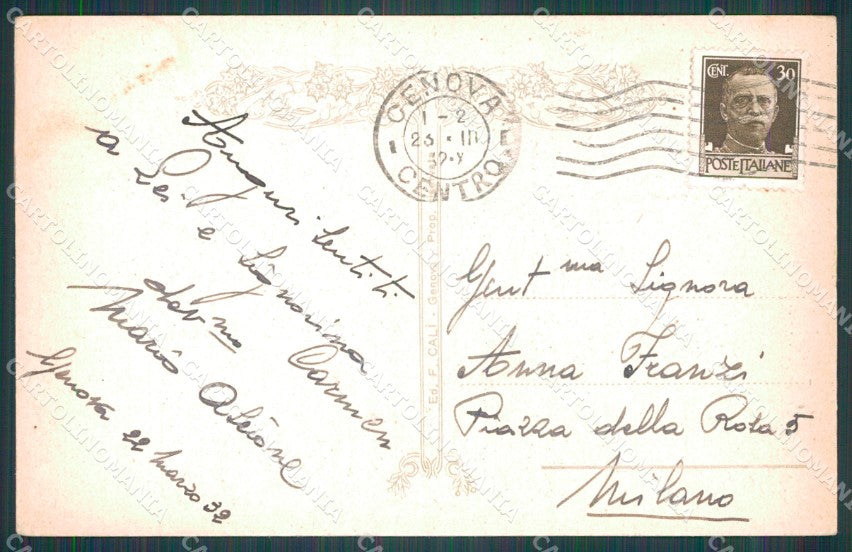 Auguri sentiti
a Lei e Signorina Carmen
dev.mo
Mario
Genova 22 marzo 32
GENOVA
1-2
23 · III
32·X
CENTRO
CENT. 30
POSTE ITALIANE
Ed. F. CALÌ - Genova Prop.
Gent ma Signora
Anna Franzi
Piazza della Rosa 5
Milano
CARTOLINOMANIA